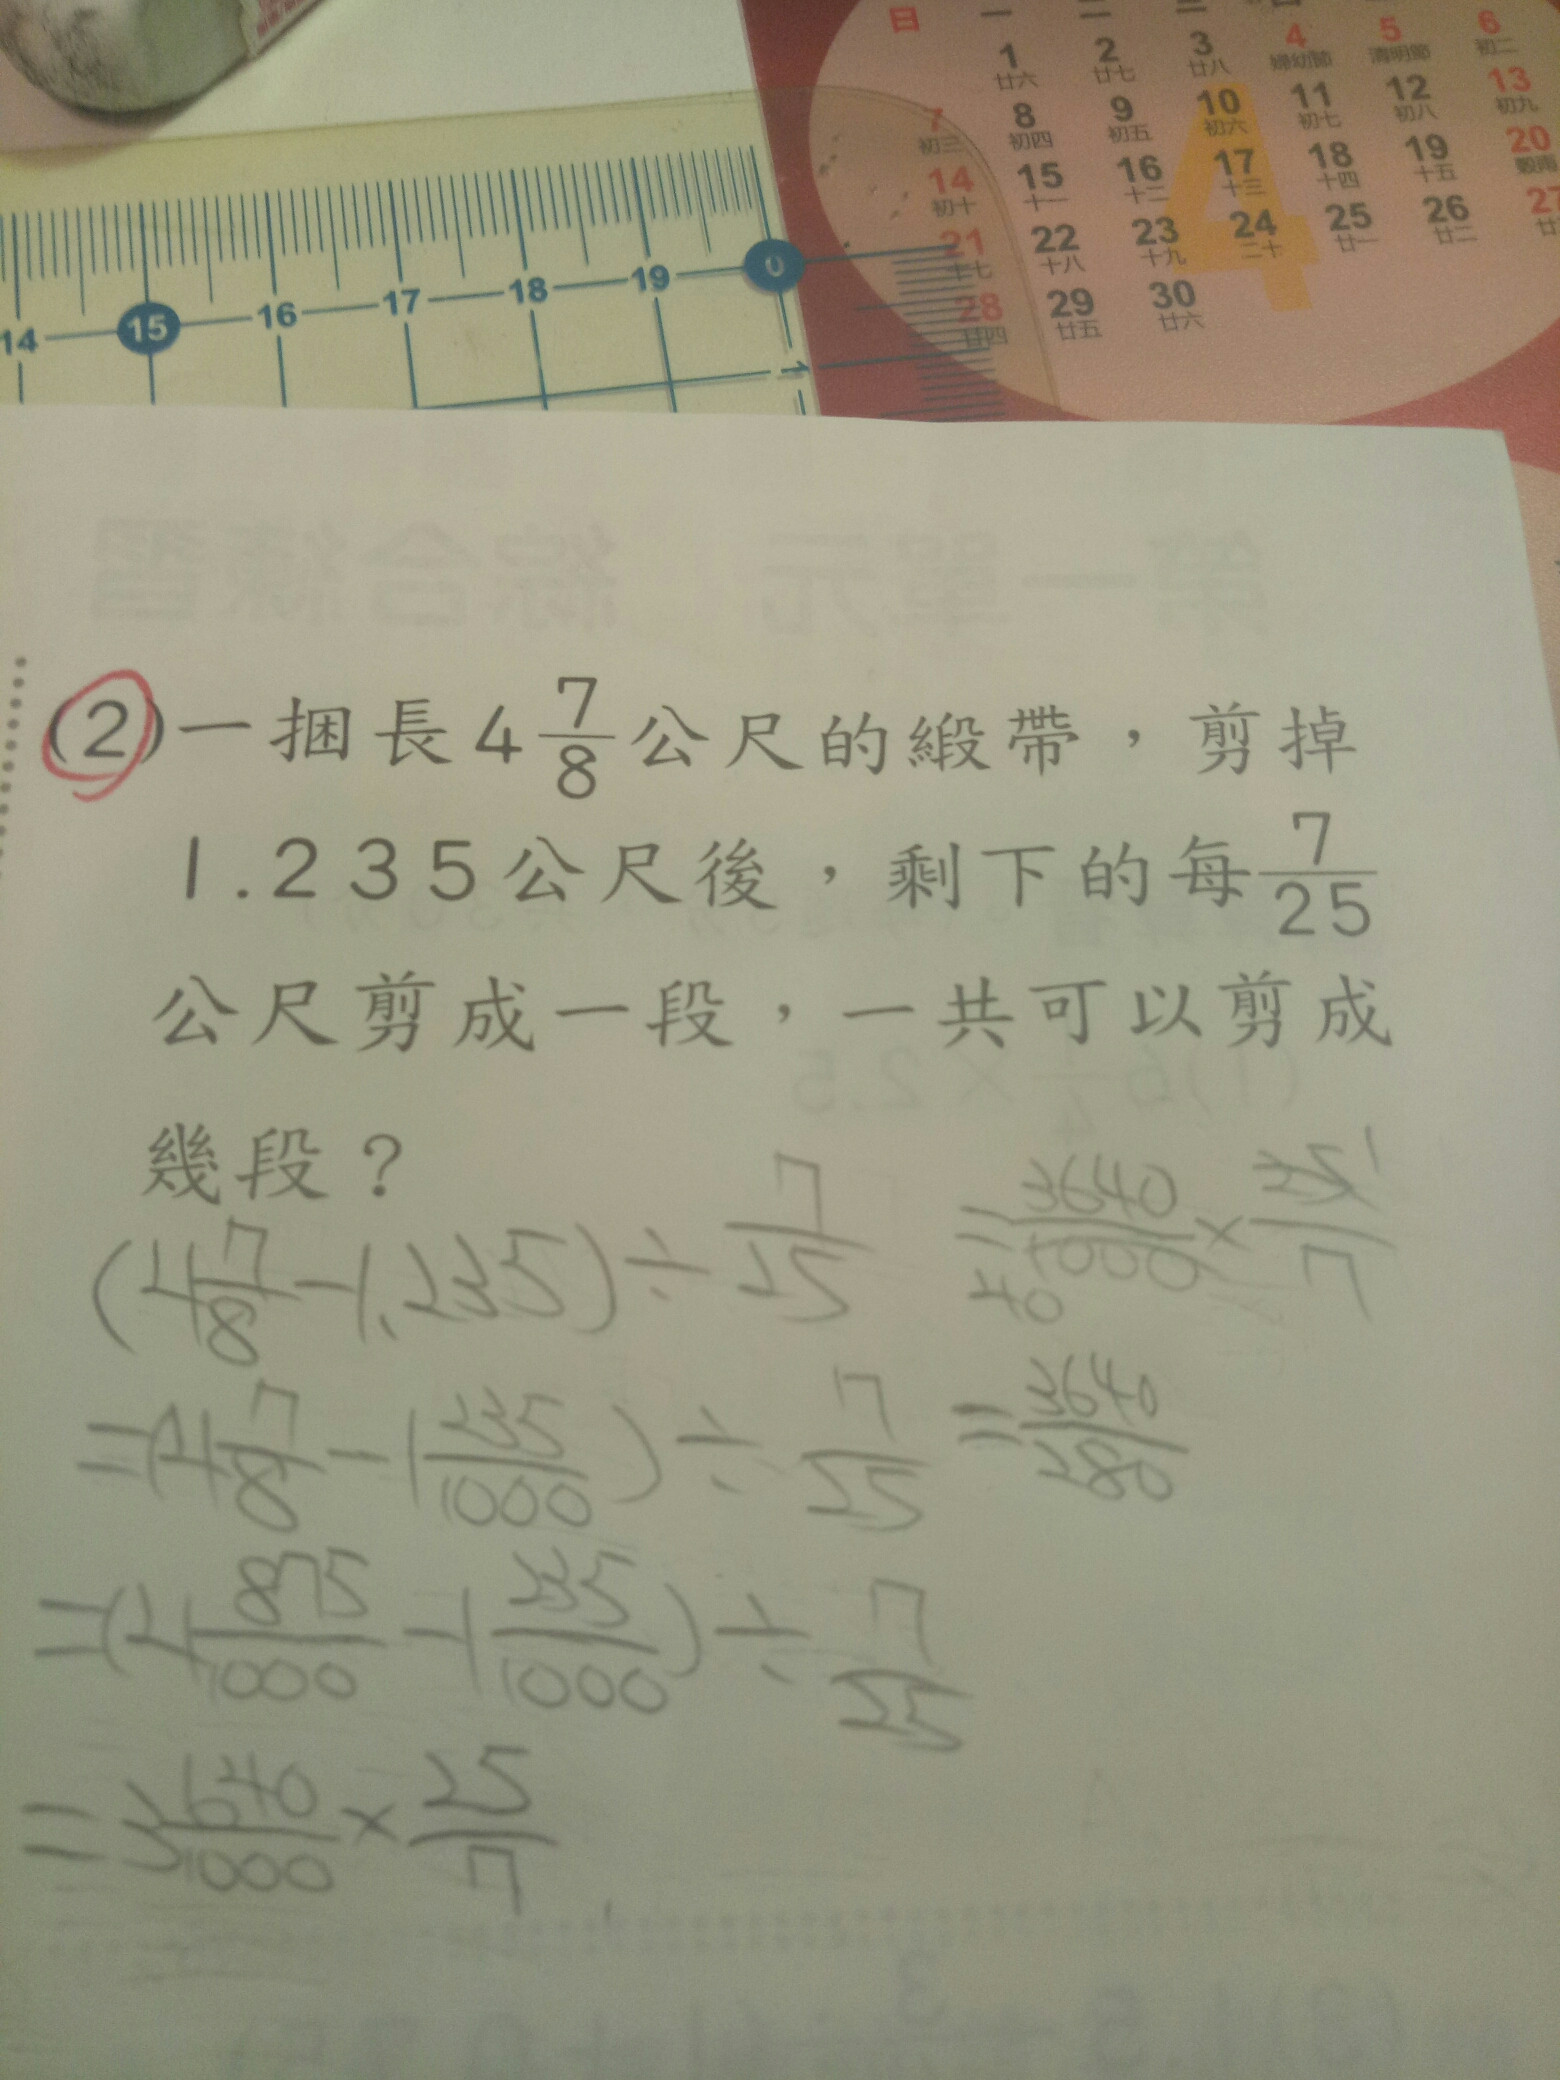 日 一 二 三 四
1 2 3 4 5 6
廿六 廿七 廿八 婦幼節 清明節 初二
7 8 9 10 11 12 13
初三 初四 初五 初六 初七 初八 初九
14 15 16 17 18 19 20
初十 十一 十二 十三 十四 十五 穀雨
21 22 23 24 25 26 27
十七 十八 十九 二十 廿一 廿二
28 29 30
廿四 廿五 廿六
4
14 15 16 17 18 19 0
1
第一單元 綜合練習
(2)一捆長4 7/8公尺的緞帶，剪掉
1.235公尺後，剩下的每7/25
公尺剪成一段，一共可以剪成
幾段？
(4 7/8-1.235)÷7/25
=(4 7/8-1 235/1000)÷7/25
=(4 875/1000-1 235/1000)÷7/25
=3 640/1000×25/7
=3640/1000×25/7
40 1
=3640/280
(1)6 1/4×2.5